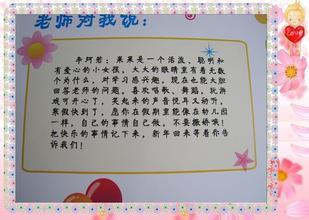 老师对我说：
李阿若：果果是一个活泼、聪明和
有爱心的小女孩，大大的眼睛里有着无数
个为什么，对学习感兴趣，现在也能大胆
回答老师的问题，喜欢唱歌、舞蹈，玩游
戏可开心了，笑起来的声音悦耳又动听，
寒假快到了，愿你在假期里能像在幼儿园
一样，自己的事情自己做，不要撒娇哦！
把快乐的事情记下来，新年回来等着你告
诉我们！